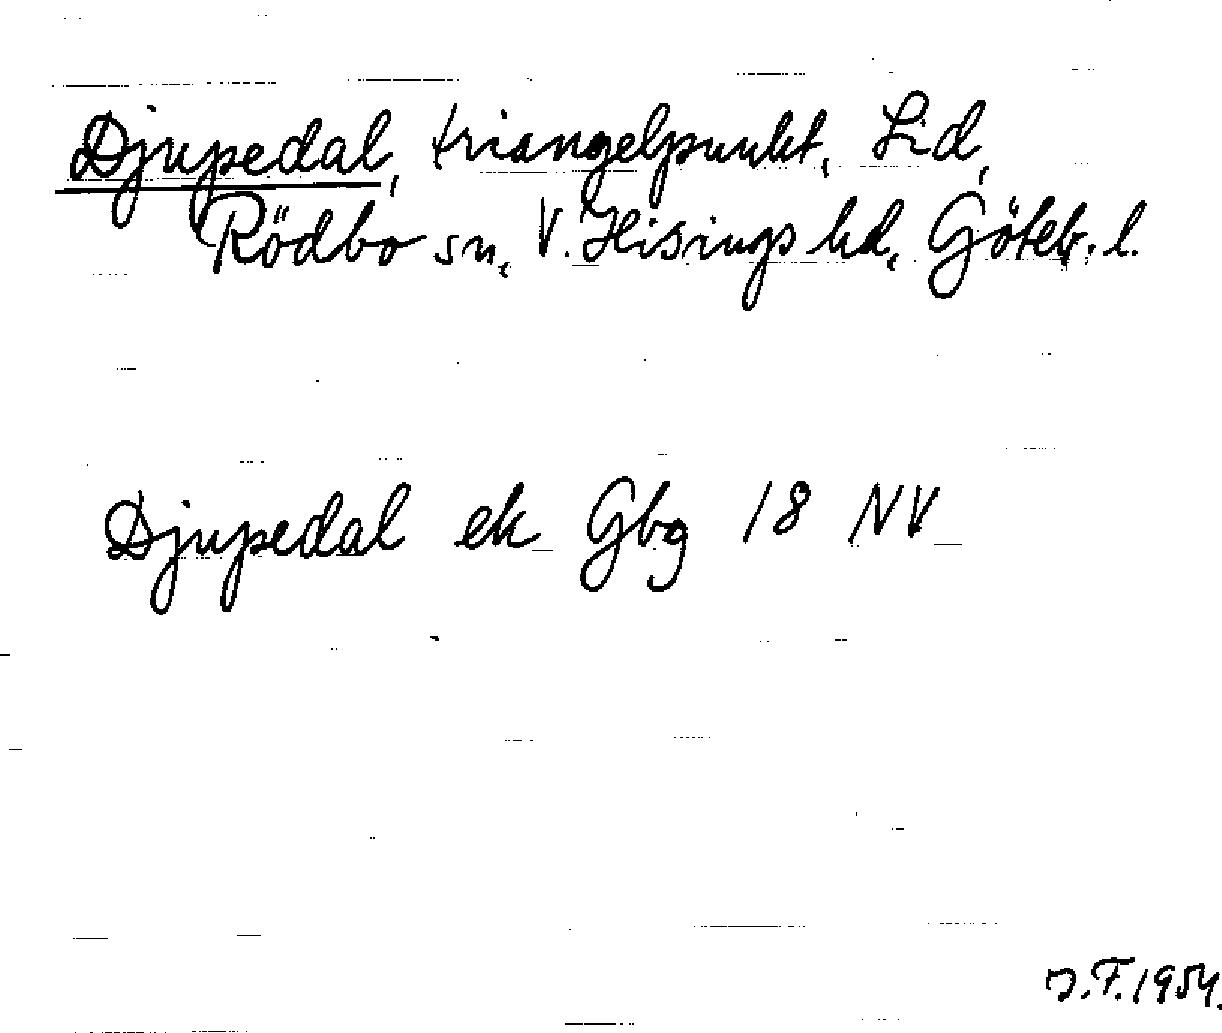 Djupedal, triangelpunkt, Lid,
Rödbo sn, V. Hisings hd, Göteb. l.
Djupedal ek Gbg 18 NV
J.F. 1954.